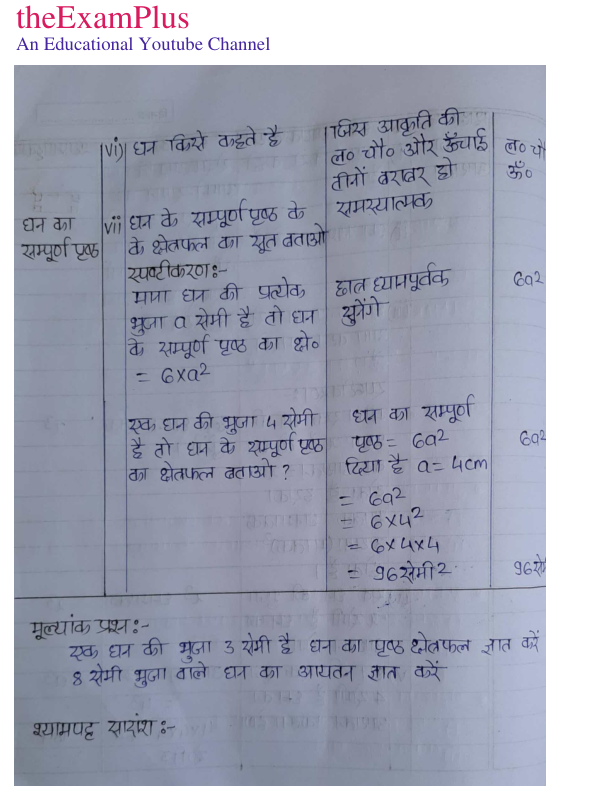 theExamPlus
An Educational Youtube Channel
vi) घन किसे कहते है
जिस आकृति की
ल० चौ० और ऊँचाई
तीनों बराबर हो
समस्यात्मक
ल० चौ
ऊँ०
घन का
सम्पूर्ण पृष्ठ
vii घन के सम्पूर्ण पृष्ठ के
के क्षेत्रफल का सूत्र बताओ
स्पष्टीकरण:-
माना घन की प्रत्येक
भुजा a सेमी है तो घन
के सम्पूर्ण पृष्ठ का क्षे०
= 6xa²
छात्र ध्यानपूर्वक
सुनेंगे
6a²
एक घन की भुजा 4 सेमी
है तो घन के सम्पूर्ण पृष्ठ
का क्षेत्रफल बताओ ?
घन का सम्पूर्ण
पृष्ठ = 6a²
दिया है a = 4cm
= 6a²
= 6x4²
= 6x4x4
= 96 सेमी²
6a²
96 से
मूल्यांक प्रश्न:-
एक घन की भुजा 3 सेमी है घन का पृष्ठ क्षेत्रफल ज्ञात करें
8 सेमी भुजा वाले घन का आयतन ज्ञात करें
श्यामपट्ट सारांश:-